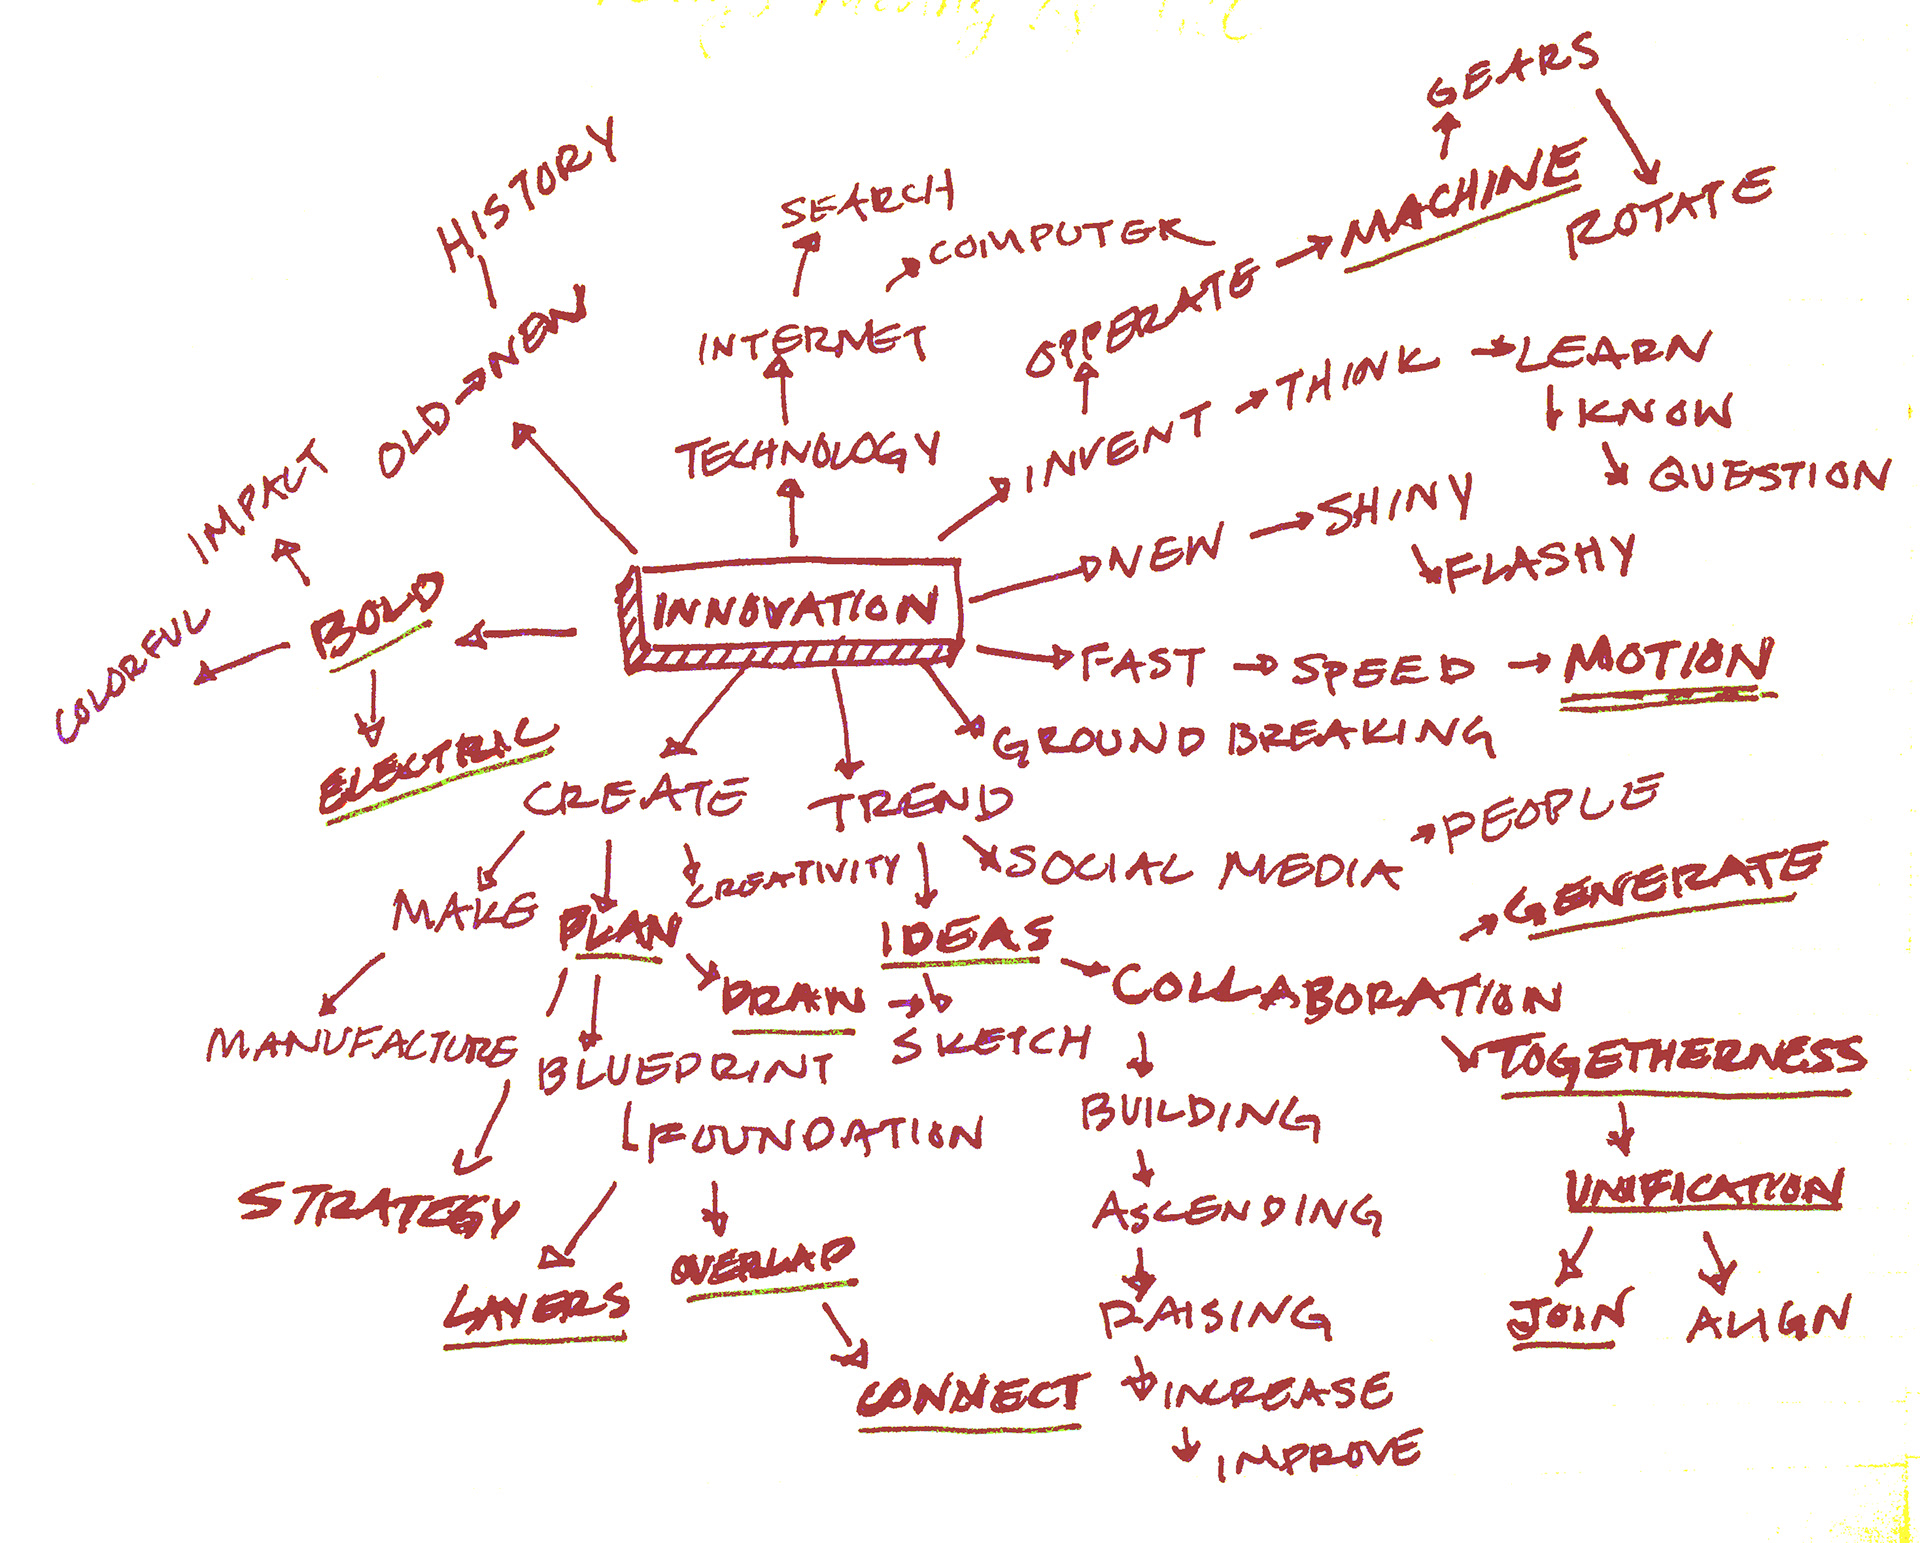 GEARS
HISTORY
SEARCH
MACHINE
ROTATE
COMPUTER
OPPERATE
OLD → NEW
INTERNET
THINK
LEARN
KNOW
IMPACT
TECHNOLOGY
INVENT
QUESTION
SHINY
NEW
FLASHY
COLORFUL
BOLD
INNOVATION
FAST → SPEED → MOTION
GROUND BREAKING
ELECTRIC
CREATE
TREND
PEOPLE
SOCIAL MEDIA
CREATIVITY
GENERATE
MAKE
PLAN
IDEAS
COLLABORATION
DRAW
SKETCH
MANUFACTURE
BLUEPRINT
TOGETHERNESS
FOUNDATION
BUILDING
STRATEGY
ASCENDING
UNIFICATION
OVERLAP
LAYERS
RAISING
JOIN
ALIGN
CONNECT
INCREASE
IMPROVE